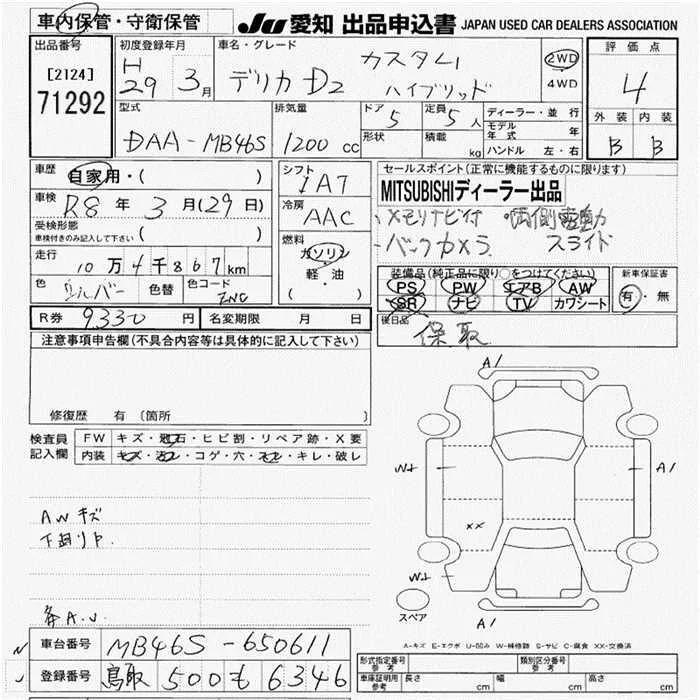 車内保管・守衛保管
JU 愛知 出品申込書 JAPAN USED CAR DEALERS ASSOCIATION
出品番号 初度登録年月 車名・グレード 評価点
[2124] H カスタム 2WD
71292 29 3月 デリカ D2 ハイブリッド 4WD 4
型式 排気量 ドア 定員 ディーラー・並行 外装 内装
5 5人 モデル年式 年
DAA-MB46S 1200 cc 形状 積載 kg ハンドル 左・右 B B
車歴 自家用・( ) シフト セールスポイント(正常に機能するものに限ります)
IAT MITSUBISHIディーラー出品
車検 R8年 3月(29日) 冷房 ・メモリナビ付 ・両側電動
受検形態 AAC ・バックカメラ スライド
車検付きのみ記入して下さい ( )
走行 燃料 ガソリン
10万4千867km 軽・油 装備品(純正品に限り○をつけてください) 新車保証書
色 シルバー 色替 色コード ZNC ( ) PS PW エアB AW 有・無
SR ナビ TV カワシート
R券 9330円 名変期限 月 日 後日品
保 取
注意事項申告欄(不具合内容等は具体的に記入して下さい)
A1
修復歴 有 (箇所 )
検査員 FW キズ・飛石・ヒビ割・リペア跡・X要
記入欄 内装 キズ・汚レ・コゲ・穴・スレ・キレ・破レ
W+ A1
AWキズ
下廻りP. XX
W+
スペア
A1
A-キズ E-エクボ U-凹み W-補修跡 S-サビ C-腐食 XX-交換済
車台番号 MB46S-650611
形式指定番号 参考 類別区分番号 参考
登録番号 鳥取 500 も 6346
車庫証明用 参考 長さ cm 幅 cm 高さ cm